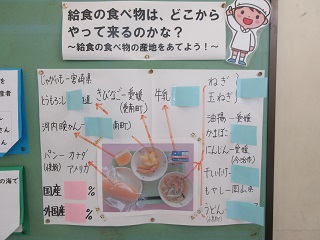 給食の食べ物は、どこから
やって来るのかな？
～給食の食べ物の産地をあてよう！～
じゃがいも－宮崎県
きびなご－愛媛
(愛南町)
牛乳
ねぎ
玉ねぎ
河内晩かん
南町)
油揚－愛媛
かまぼこ
パン－カナダ
アメリカ
にんじん－愛媛
(今治市)
干しいたけ
もやし－岡山県
うどん
国産 %
外国産 %